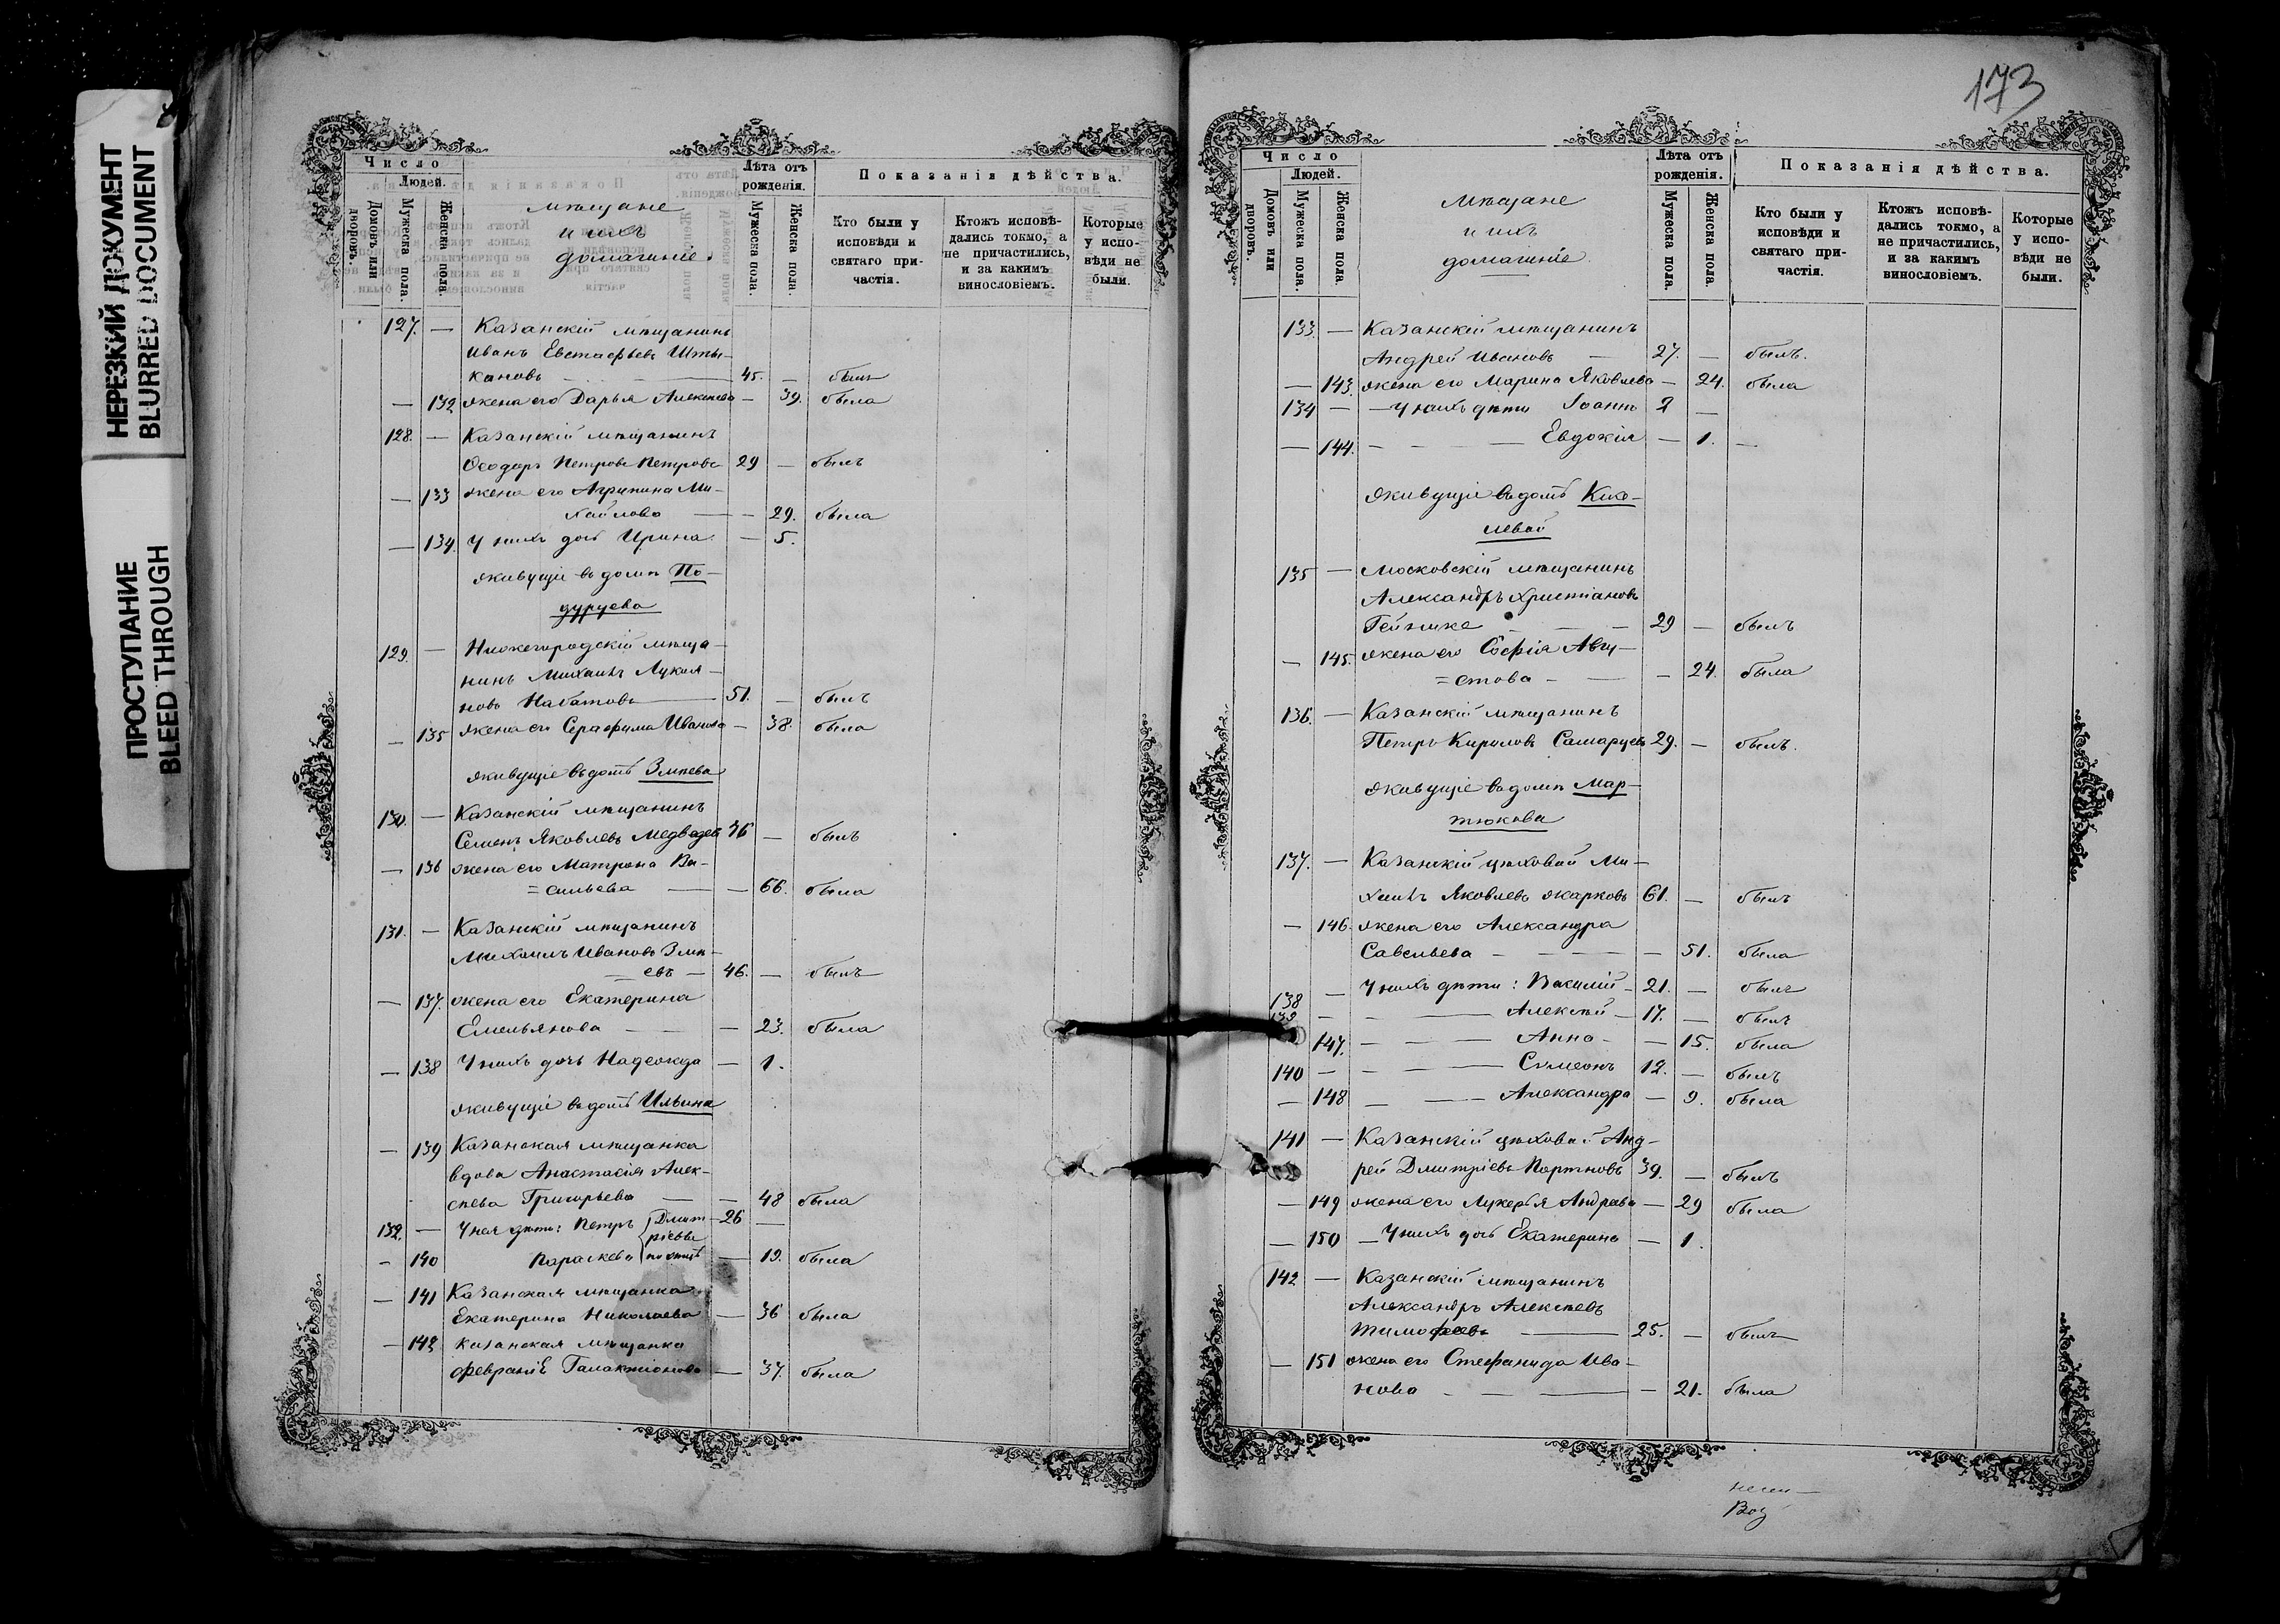 173
НЕРЕЗКИЙ ДОКУМЕНТ
BLURRED DOCUMENT
ПРОСТУПАНИЕ
BLEED THROUGH
Число
Людей.
Домовъ или дворовъ.
Мужеска пола.
Женска пола.
Мѣщане
и ихъ
домашніе.
Лѣта отъ рожденія.
Мужеска пола.
Женска пола.
Показанія дѣйства.
Кто были у исповѣди и святаго причастія.
Ктожъ исповѣдались токмо, а не причастились, и за какимъ винословіемъ.
Которые у исповѣди не были.
127. — Казанскій мѣщанинъ
Иванъ Евстафьевъ Шты-
кановъ — 45. — былъ
— 132 жена его Дарья Алексѣева — 39. была
128. — Казанскій мѣщанинъ
Ѳеодоръ Петровъ Петровъ 29 — былъ
— 133 жена его Агрипина Ми-
хайлова — — 29. была
— 134. У нихъ дочь Ирина — 5.
живущіе въ домѣ По-
дуруева
129. — Нижегородскій мѣща-
нинъ Михаилъ Лукья-
новъ Набатовъ — 51. — былъ
— 135 жена его Серафима Иванова — 38. была
живущіе въ домѣ Змѣева
130. — Казанскій мѣщанинъ
Семенъ Яковлевъ Медведевъ 76 — былъ
— 136 жена его Матрона Ва-
=сильева — — 66. была
131. — Казанскій мѣщанинъ
Михаилъ Ивановъ Змѣ-
евъ — 46. — былъ
— 137. жена его Екатерина
Емельянова — — 23. была
— 138 У нихъ дочь Надежда — 1.
живущіе въ домѣ Ильина
— 139 Казанская мѣщанка
вдова Анастасія Алек-
сѣева Григорьева — — 48 была
132. — У нея дѣти: Петръ Дмит- 26 —
ріевы
— 140 Параскева по отцѣ — 19. была
— 141 Казанская мѣщанка
Екатерина Николаева — 36 была
— 142 Казанская мѣщанка
Февранія Галактіонова — 37. была
Число
Людей.
Домовъ или дворовъ.
Мужеска пола.
Женска пола.
Мѣщане
и ихъ
домашніе.
Лѣта отъ рожденія.
Мужеска пола.
Женска пола.
Показанія дѣйства.
Кто были у исповѣди и святаго причастія.
Ктожъ исповѣдались токмо, а не причастились, и за какимъ винословіемъ.
Которые у исповѣди не были.
133. — Казанскій мѣщанинъ
Андрей Ивановъ — 27. — былъ.
— 143. жена его Марина Яковлева — 24. была
134 — — У нихъ дѣти Іоаннъ 2 —
— 144. — — — Евдокія — 1. —
живущіе въ домѣ Кисе-
левой
135 — Московскій мѣщанинъ
Александръ Христіановъ
Гейнике — 29 — былъ
— 145. жена его Софія Авгу-
=стова — — 24. была
136. — Казанскій мѣщанинъ
Петръ Кириловъ Самаруевъ 29. — былъ.
живущіе въ домѣ Мар-
тюкова
137. — Казанскій цѣховой Ми-
хаилъ Яковлевъ Жарковъ 61. — былъ
— 146. жена его Александра
Савельева — — 51. была
138 — У нихъ дѣти: Василій — 21. — былъ
139 — — — Алексѣй — 17. — былъ
147. — — — Анна — — 15. была
140 — — — Сѵмеонъ 12. — былъ
— 148 — — Александра — 9. была
141 — Казанскій цѣховой Анд-
рей Дмитріевъ Портновъ 39. — былъ
— 149 жена его Лукерья Андреева — 29 была
— 150 — У нихъ дочь Екатерина — 1.
142 — Казанскій мѣщанинъ
Александръ Алексѣевъ
Тимофеевъ — 25. — былъ
— 151 жена его Стефанида Ива-
нова — — 21. была